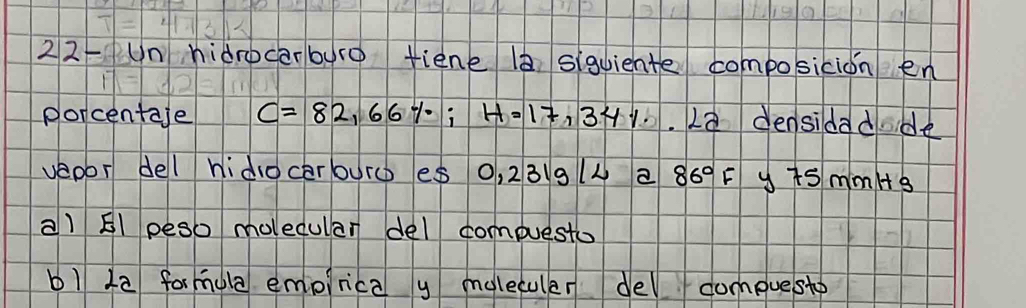 22- Un hidrocarburo tiene la siguiente composición en
porcentaje C= 82,66%; H=17,34%. La densidad de
vapor del hidrocarburo es 0,231g/L a 86°F y 75mmHg
a) El peso molecular del compuesto
b) La formula empírica y molecular del compuesto